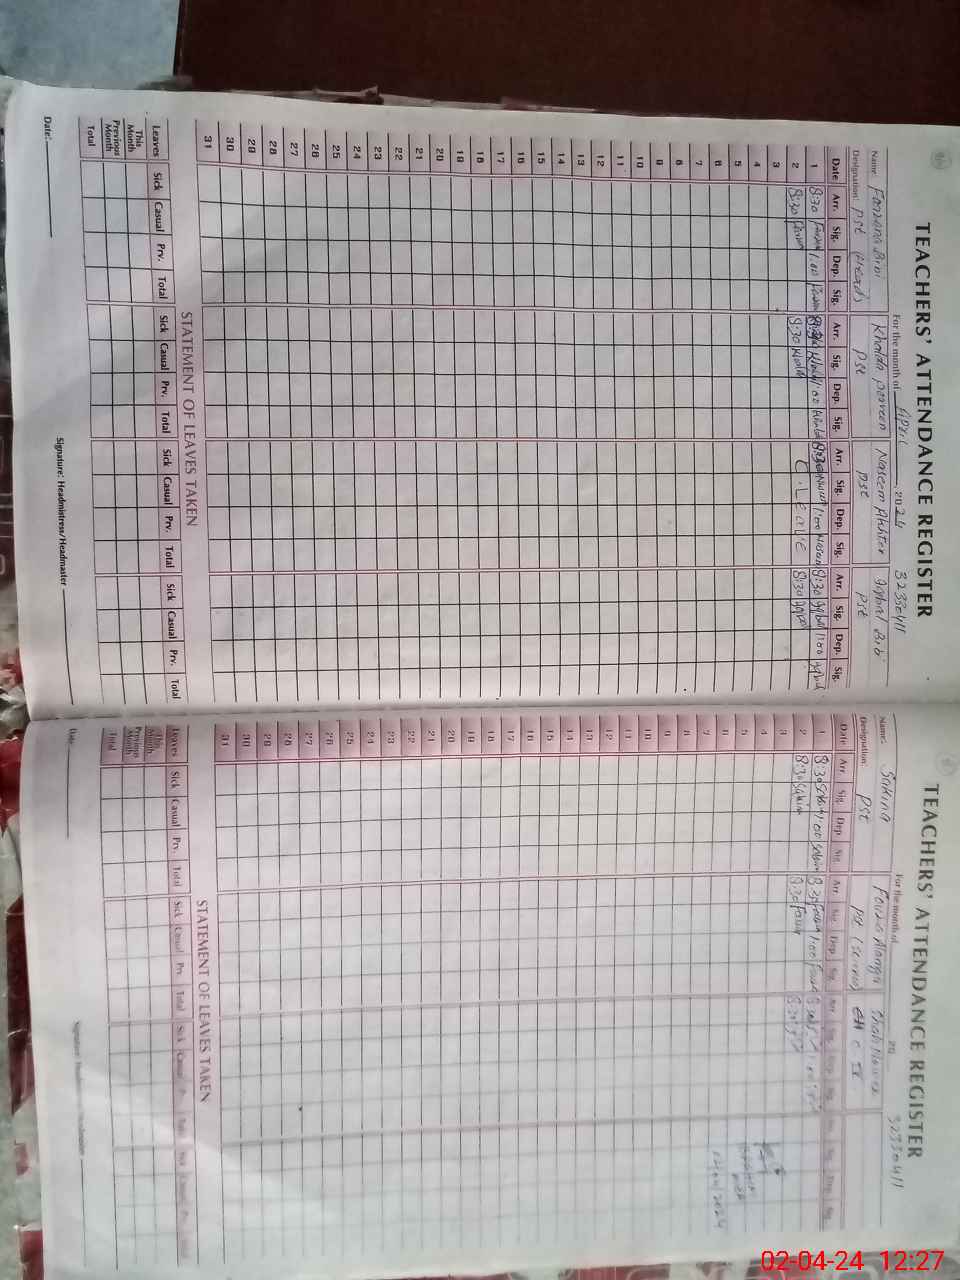 TEACHERS' ATTENDANCE REGISTER
For the month of April, 2024 32330411
Name: Farzana Bibi Khalda Parveen Naseem Akhter Iqbal Bibi
Designation: PST (Head) PST PST PST
Date Arr. Sig. Dep. Sig. Arr. Sig. Dep. Sig. Arr. Sig. Dep. Sig. Arr. Sig. Dep. Sig.
1 8:30 1:00 8:30 1:00 8:30 1:00 Naseem 8:30 Iqbal 1:00 Iqbal
2 8:30 8:30 Khalda C. Leave 8:30 Iqbal
3
4
5
6
7
8
9
10
11
12
13
14
15
16
17
18
19
20
21
22
23
24
25
26
27
28
29
30
31
STATEMENT OF LEAVES TAKEN
Leaves Sick Casual Prv. Total Sick Casual Prv. Total Sick Casual Prv. Total Sick Casual Prv. Total
This Month
Previous Month
Total
Date: Signature: Headmistress/Headmaster
TEACHERS' ATTENDANCE REGISTER
For the month of 20 32330411
Name: Sakina Fouzia Shah Nawaz
Designation: PST PST C-IV
Date Arr. Sig. Dep. Sig. Arr. Sig. Dep. Sig. Arr. Sig. Dep. Sig. Arr. Sig. Dep. Sig.
1 8:30 Sakina 1:00 Sakina 8:30 1:00 8:30 1:00
2 8:30 Sakina 8:30 Fouzia 8:30
3
4
5
6
7
8
9
10
11
12
13
14
15
16
17
18
19
20
21
22
23
24
25
26
27
28
29
30
31
STATEMENT OF LEAVES TAKEN
Leaves Sick Casual Prv. Total Sick Casual Prv. Total Sick Casual Prv. Total Sick Casual Prv. Total
This Month
Previous Month
Total
Date: Signature: Headmistress/Headmaster
02-04-24 12:27